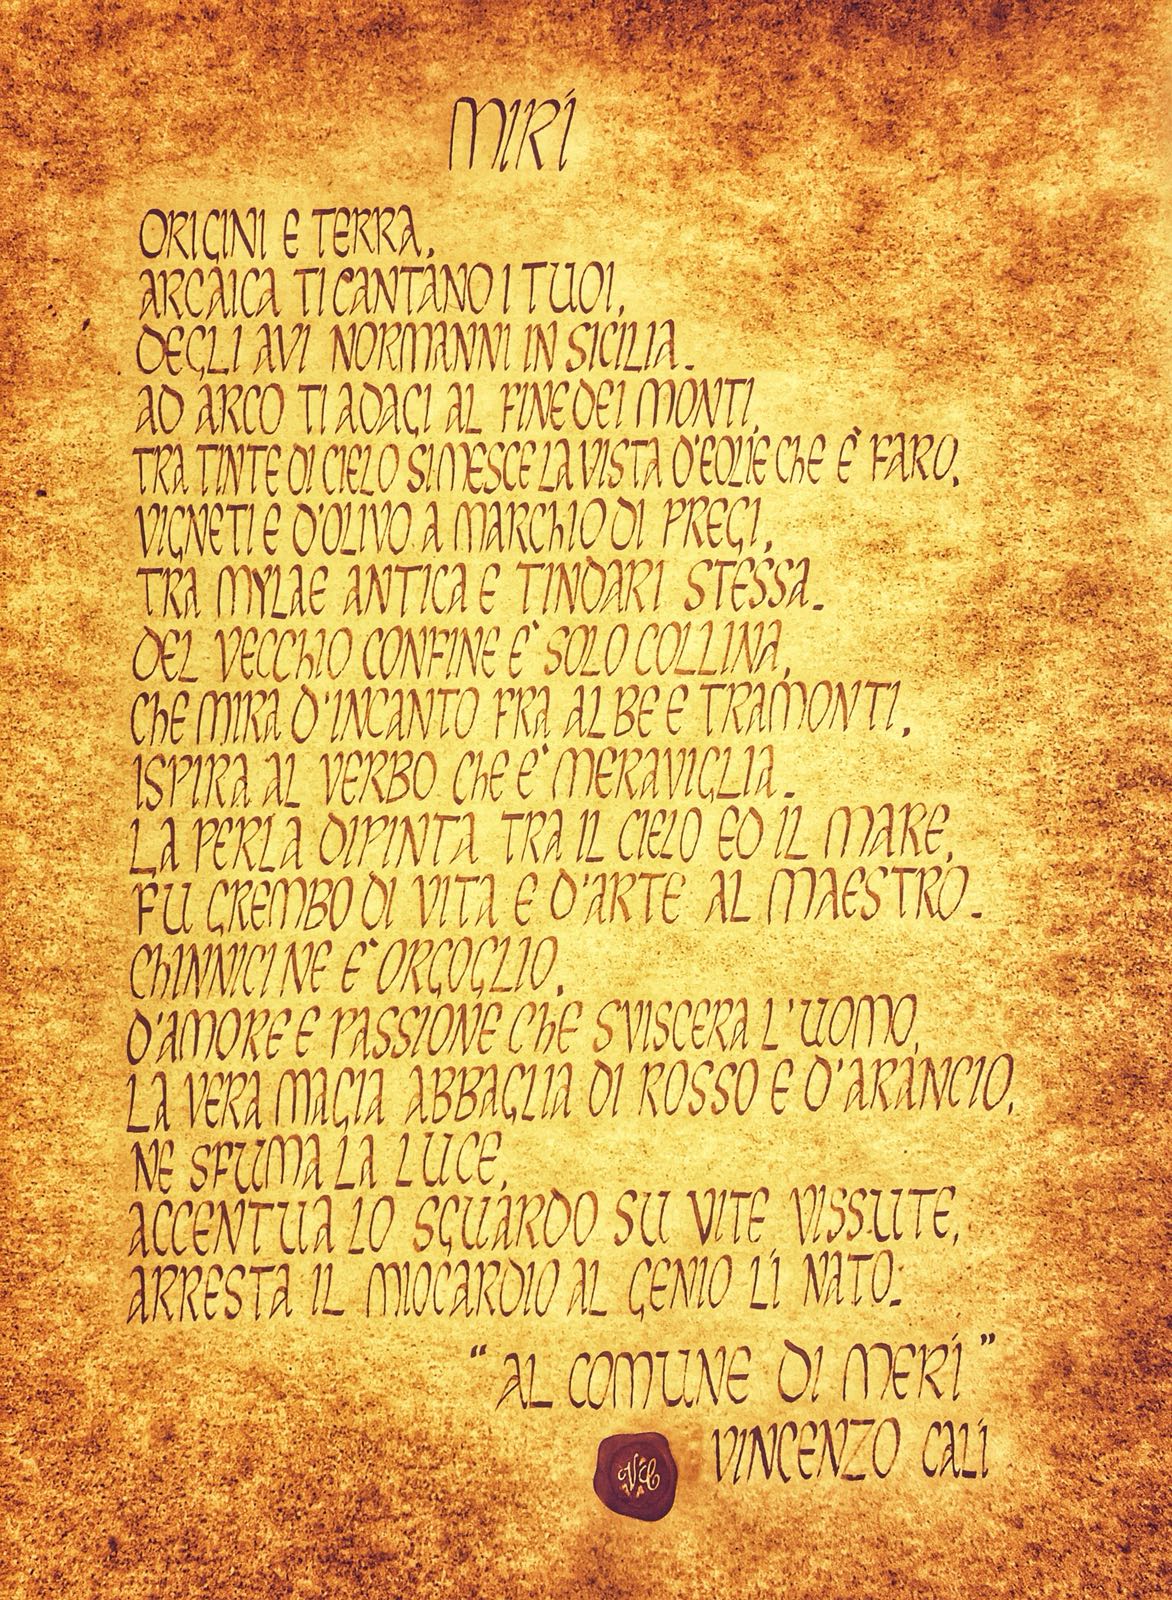 MIRÍ
ORIGINI E TERRA,
ARCAICA TI CANTANO I TUOI,
DEGLI AVI NORMANNI IN SICILIA.
AD ARCO TI ADAGI AL FINE DEI MONTI,
TRA TINTE DI CIELO SI MESCE LA VISTA D'EOLIE ChE È FARO,
VIGNETI E D'OLIVO A MARChIO DI PREGI,
TRA MYLAE ANTICA E TINDARI STESSA.
DEL VECChIO CONFINE È SOLO COLLINA,
ChE MIRA D'INCANTO FRA ALBE E TRAMONTI,
ISPIRA AL VERBO ChE È MERAVIGLIA.
LA PERLA DIPINTA TRA IL CIELO ED IL MARE,
FU GREMBO DI VITA E D'ARTE AL MAESTRO.
ChINNICI NE È ORGOGLIO,
D'AMORE E PASSIONE ChE SVISCERA L'UOMO,
LA VERA MAGIA ABBAGLIA DI ROSSO E D'ARANCIO,
NE SFUMA LA LUCE,
ACCENTUA LO SGUARDO SU VITE VISSUTE,
ARRESTA IL MIOCARDIO AL GENIO LÍ NATO.
“AL COMUNE DI MERÍ”
VINCENZO CALÍ